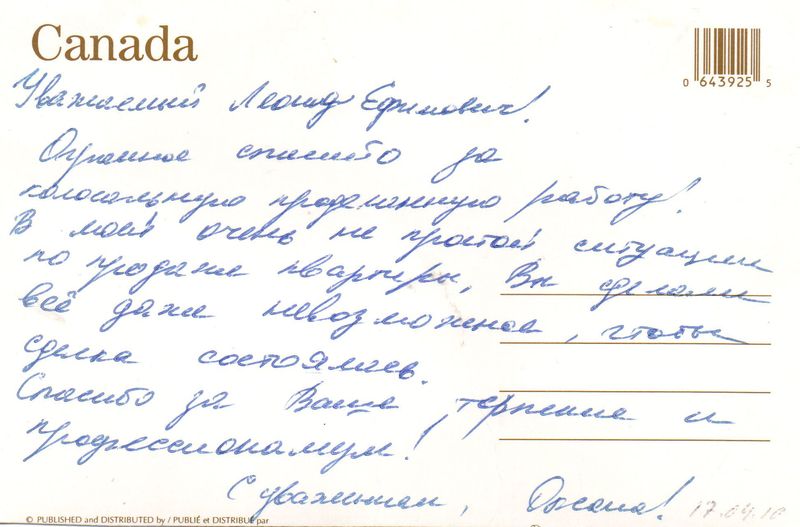 Canada
0 643925 5
Уважаемый Леонид Ефимович!
Огромное спасибо за
колосальную проделанную работу!
В моей очень не простой ситуации
по продаже квартиры, Вы сделали
всё даже невозможное, чтобы
сделка состоялась.
Спасибо за Ваше терпение и
профессионализм!
С уважением, Оксана!
17.04.16
© PUBLISHED and DISTRIBUTED by / PUBLIÉ et DISTRIBUÉ par